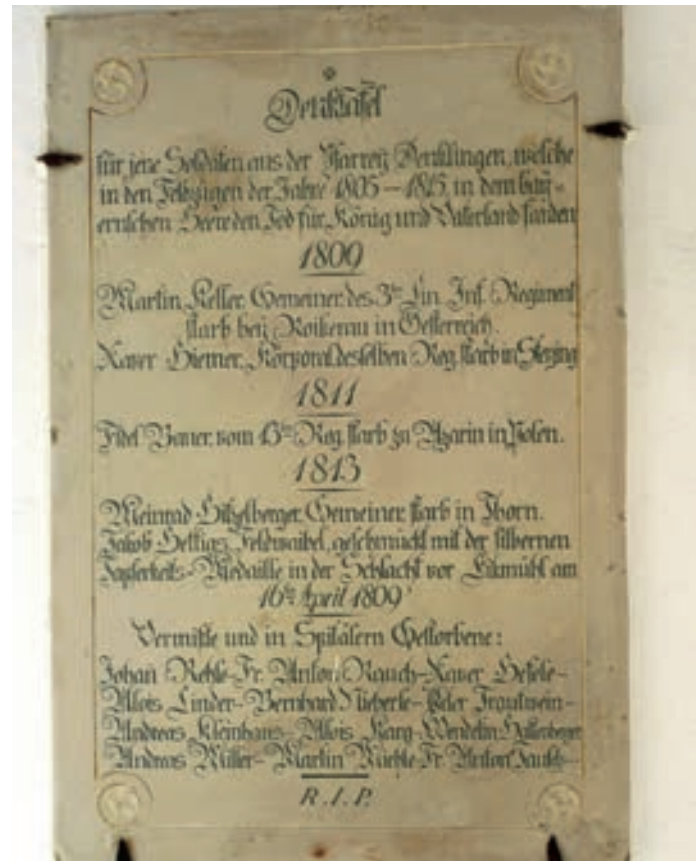 Denktafel
für jene Soldaten aus der Pfarrey Denklingen, welche
in den Feldzügen der Jahre 1805 – 1815 in dem bay-
erischen Heere den Tod für König und Vaterland fanden
1809
Martin Keller, Gemeiner des 3ten Lin. Inf. Regiment
starb bey in Oesterreich.
Xaver Hiemer, Korporal desselben Reg. starb in Sterzing
1811
Fidel Bauer, vom 13ten Reg. starb zu in Polen.
1813
Meinrad Hitzelberger, Gemeiner, starb in Thorn.
Jakob Feldwaibel, geschmückt mit der silbernen
Tapferkeits-Medaille in der Schlacht vor Ekmühl am
16ten April 1809
Vermißte und in Spitälern Gestorbene:
Johan Fr. Anton Rauch – Xaver Hefele –
Alois Linder – Bernhard Nieberle – Peter Trautwein –
Andreas Kleinhans – Alois Karg – Wendelin
Andreas Miller – Martin Fr. Anton
R.I.P.